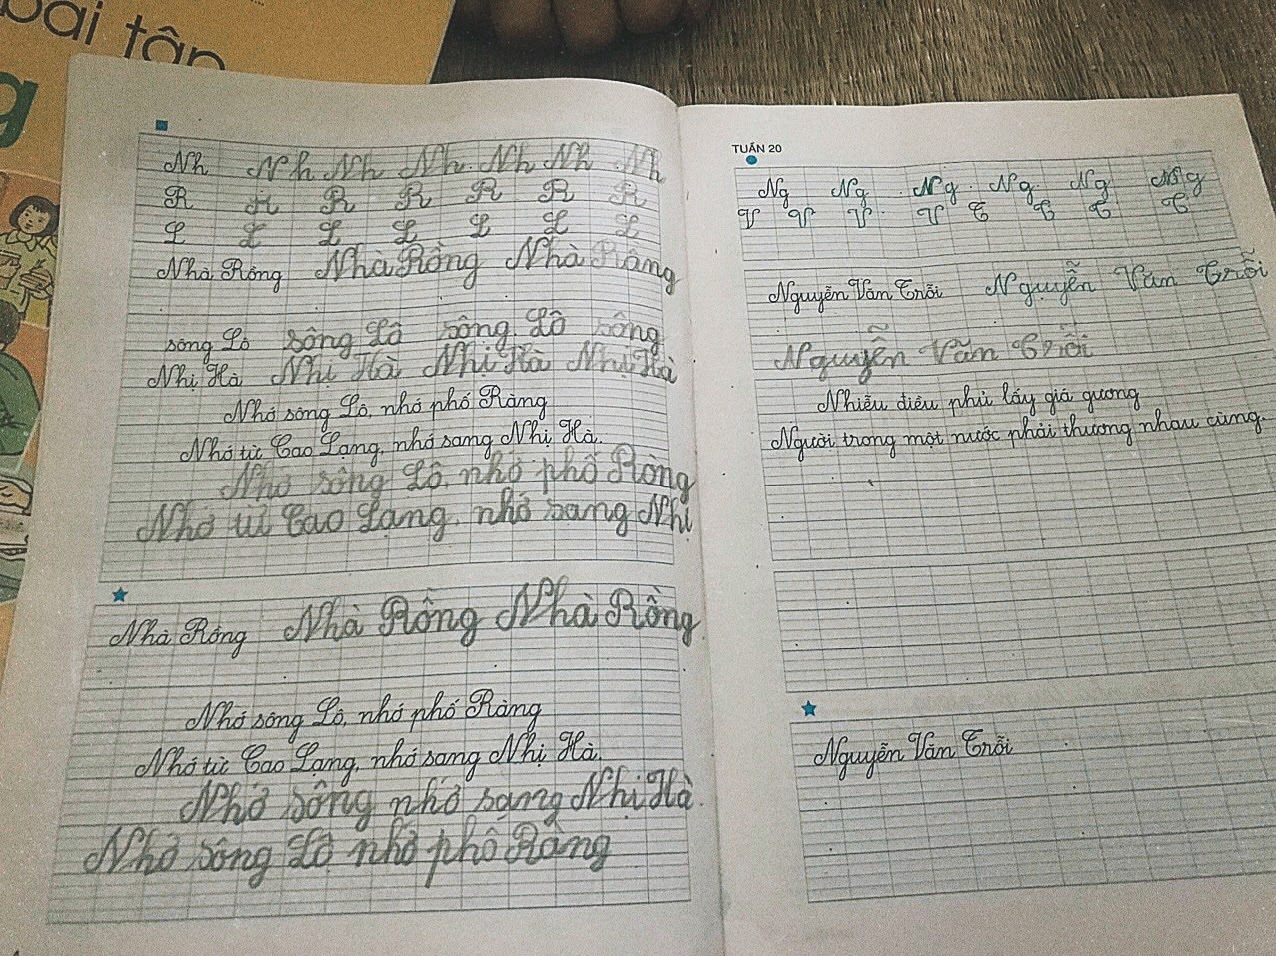 bài tập
g
Nh Nh Nh Nh. Nh Nh Nh
R R R R R R R
L L L L L L L
Nhà Rồng Nhà Rồng Nhà Rông
sông Lô sông Lô sông Lô sông
Nhị Hà Nhi Hà Nhị Hà Nhị Hà
Nhớ sông Lô, nhớ phố Ràng
Nhớ từ Cao Lạng, nhớ sang Nhị Hà.
Nhớ sông Lô, nhớ phố Ròng
Nhớ từ Cao Lạng, nhớ sang Nhị
Nhà Rồng Nhà Rồng Nhà Rồng
Nhớ sông Lô, nhớ phố Ràng
Nhớ từ Cao Lạng, nhớ sang Nhị Hà.
Nhớ sông nhớ sang Nhị Hà.
Nhớ sông Lô nhớ phố Ràng
TUẦN 20
Ng Ng Ng Ng Ng Ng
V V V V T T T T
Nguyễn Văn Trỗi Nguyễn Văn Trỗi
Nguyễn Văn Trỗi
Nhiễu điều phủ lấy giá gương
Người trong một nước phải thương nhau cùng.
Nguyễn Văn Trỗi